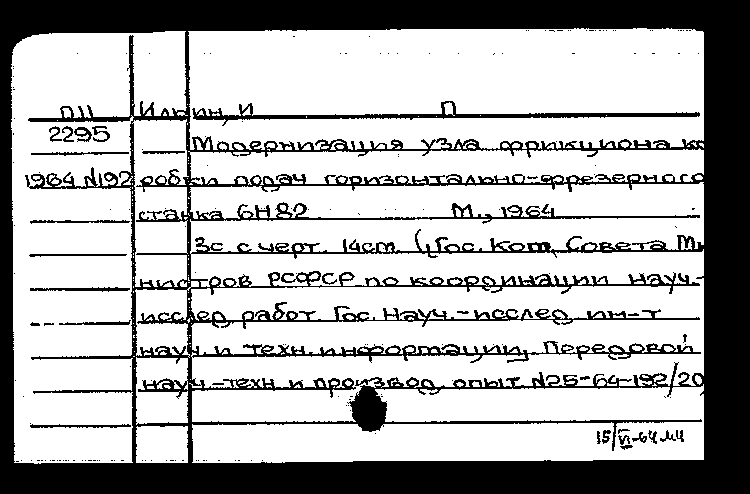 П11 Ильин, И П
2295 Модернизация узла фрикциона ко
1964 N192 робки подач горизонтально-фрезерного
станка 6Н82 М., 1964
3с. с черт. 14см. (Гос. Ком. Совета Ми
нистров РСФСР по координации науч.-
исслед. работ. Гос. Науч.-исслед. ин-т
науч. и техн. информации. Передовой
науч.-техн. и производ. опыт N25-64-192/20
15/VI-64